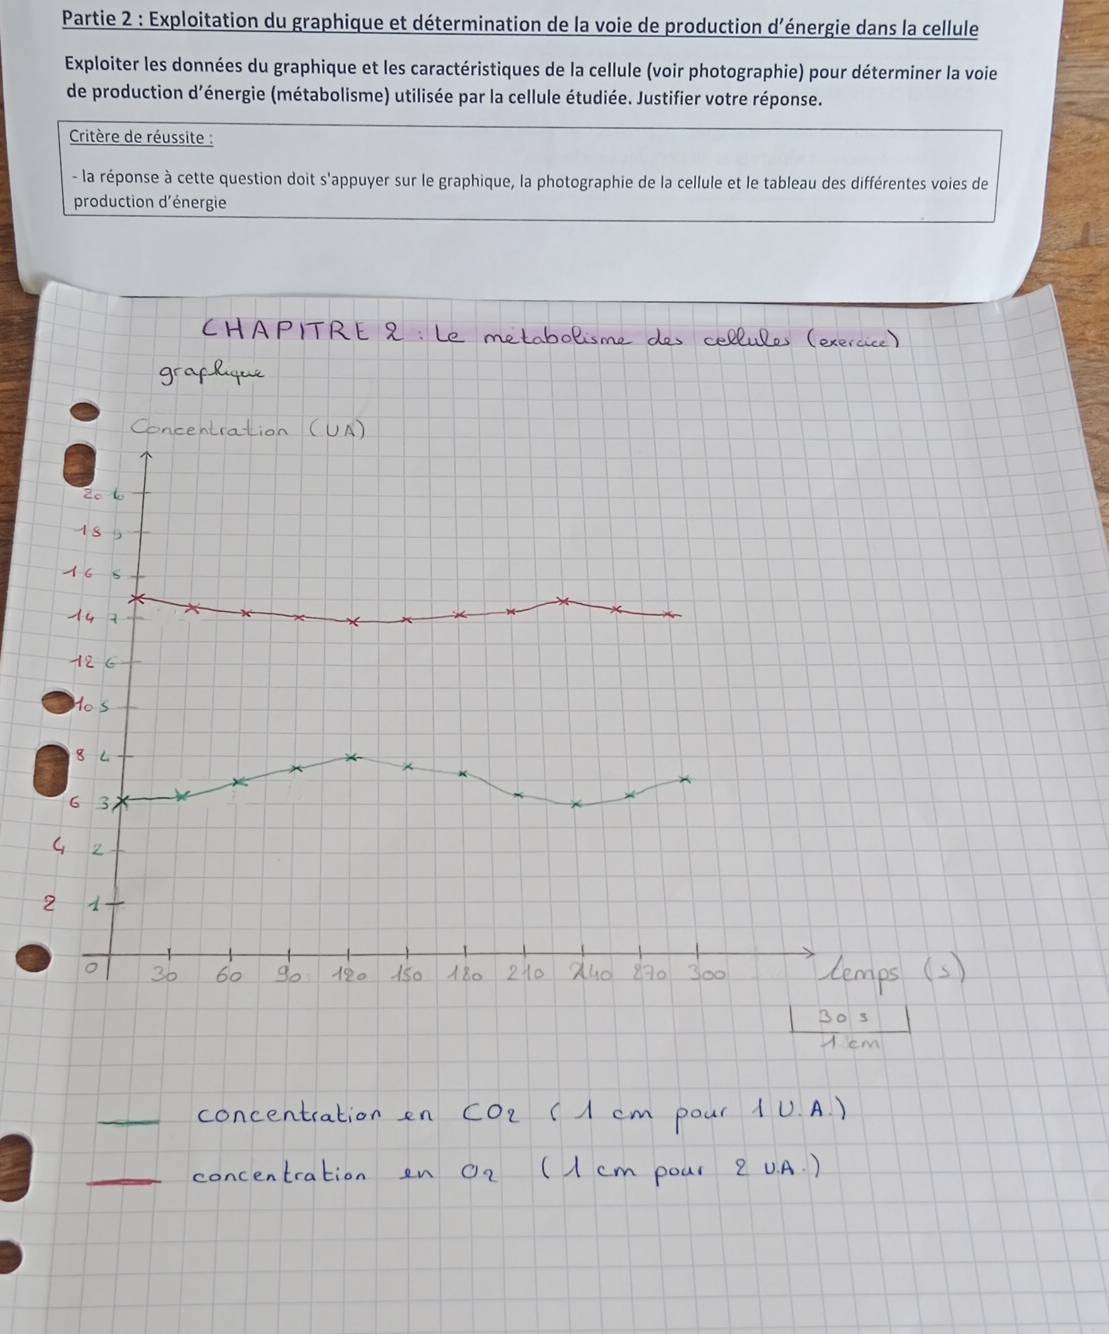 Partie 2 : Exploitation du graphique et détermination de la voie de production d'énergie dans la cellule
Exploiter les données du graphique et les caractéristiques de la cellule (voir photographie) pour déterminer la voie
de production d'énergie (métabolisme) utilisée par la cellule étudiée. Justifier votre réponse.
Critère de réussite :
- la réponse à cette question doit s'appuyer sur le graphique, la photographie de la cellule et le tableau des différentes voies de
production d'énergie
CHAPITRE 2 : Le métabolisme des cellules (exercice)
graphique
Concentration (UA)
20
18
16
14 7
12 6
10 5
8 4
6 3
4 2
2 1
0 30 60 90 120 150 180 210 240 270 300 temps (s)
30 s
1 cm
concentration en CO2 (1 cm pour 1 U.A.)
concentration en O2 (1 cm pour 2 U.A.)